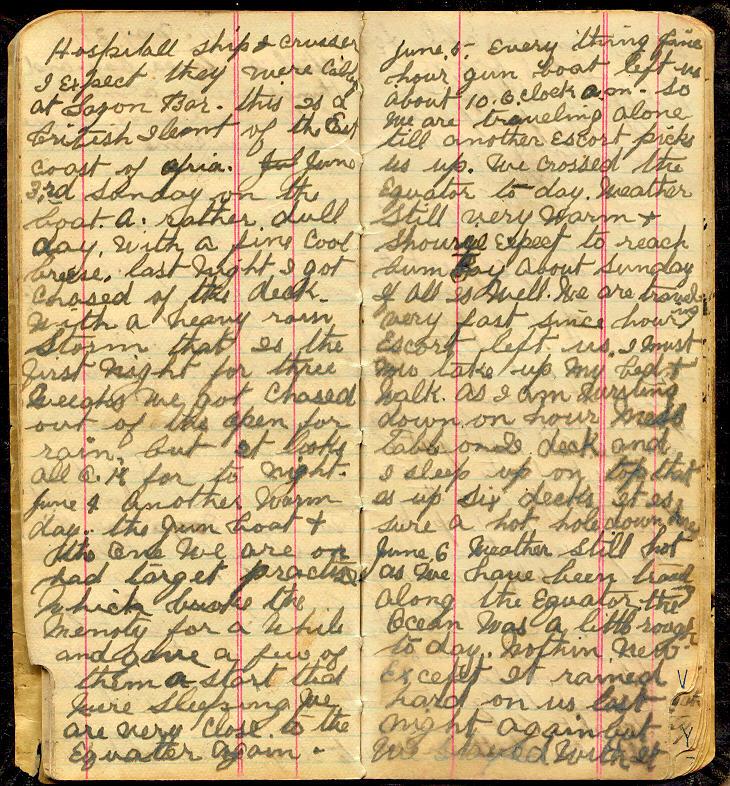 Hospitall ship & Crusser
I Expect they were
at Bar. this is a
British Ileant of the Est
Coast of afria. June
3,rd Sunday on the
boat. A. rather dull
day, with a fine Cool
breese. last Night I got
Chased of the deck.
With a heavy rain
Storm that is the
first Night for three
Weeghs We got Chased
out of the open for
rain, but it looks
all O.K for to night.
June 4 another Warm
day. the gun boat &
the one We are on
had target practis
Which the
for a While
and gave a few of
them a start that
Were Sleeping We
are very Close to the
Equater again.
June. 5. Every thing fine
hour gun boat left us
about 10. O.clock a.m. so
We are traveling alone
till another Escort picks
us up. We Crossed the
Equator to day. Weather
Still very Warm &
Expect to reach
bumbay about Sunday
if all is Well. We are traveling
very fast since hour
Escort left us. I must
take up my bed &
Walk. as I am
down on hour mess
deck and
I sleep up on top that
is up six decks. it is
sure a hot hole down here
June 6 Weather still hot
as We have been
along the Equator. the
Ocean Was a little rough
to day. Nothin New
Except it rained
hard on us last
night again but
We stayed With it